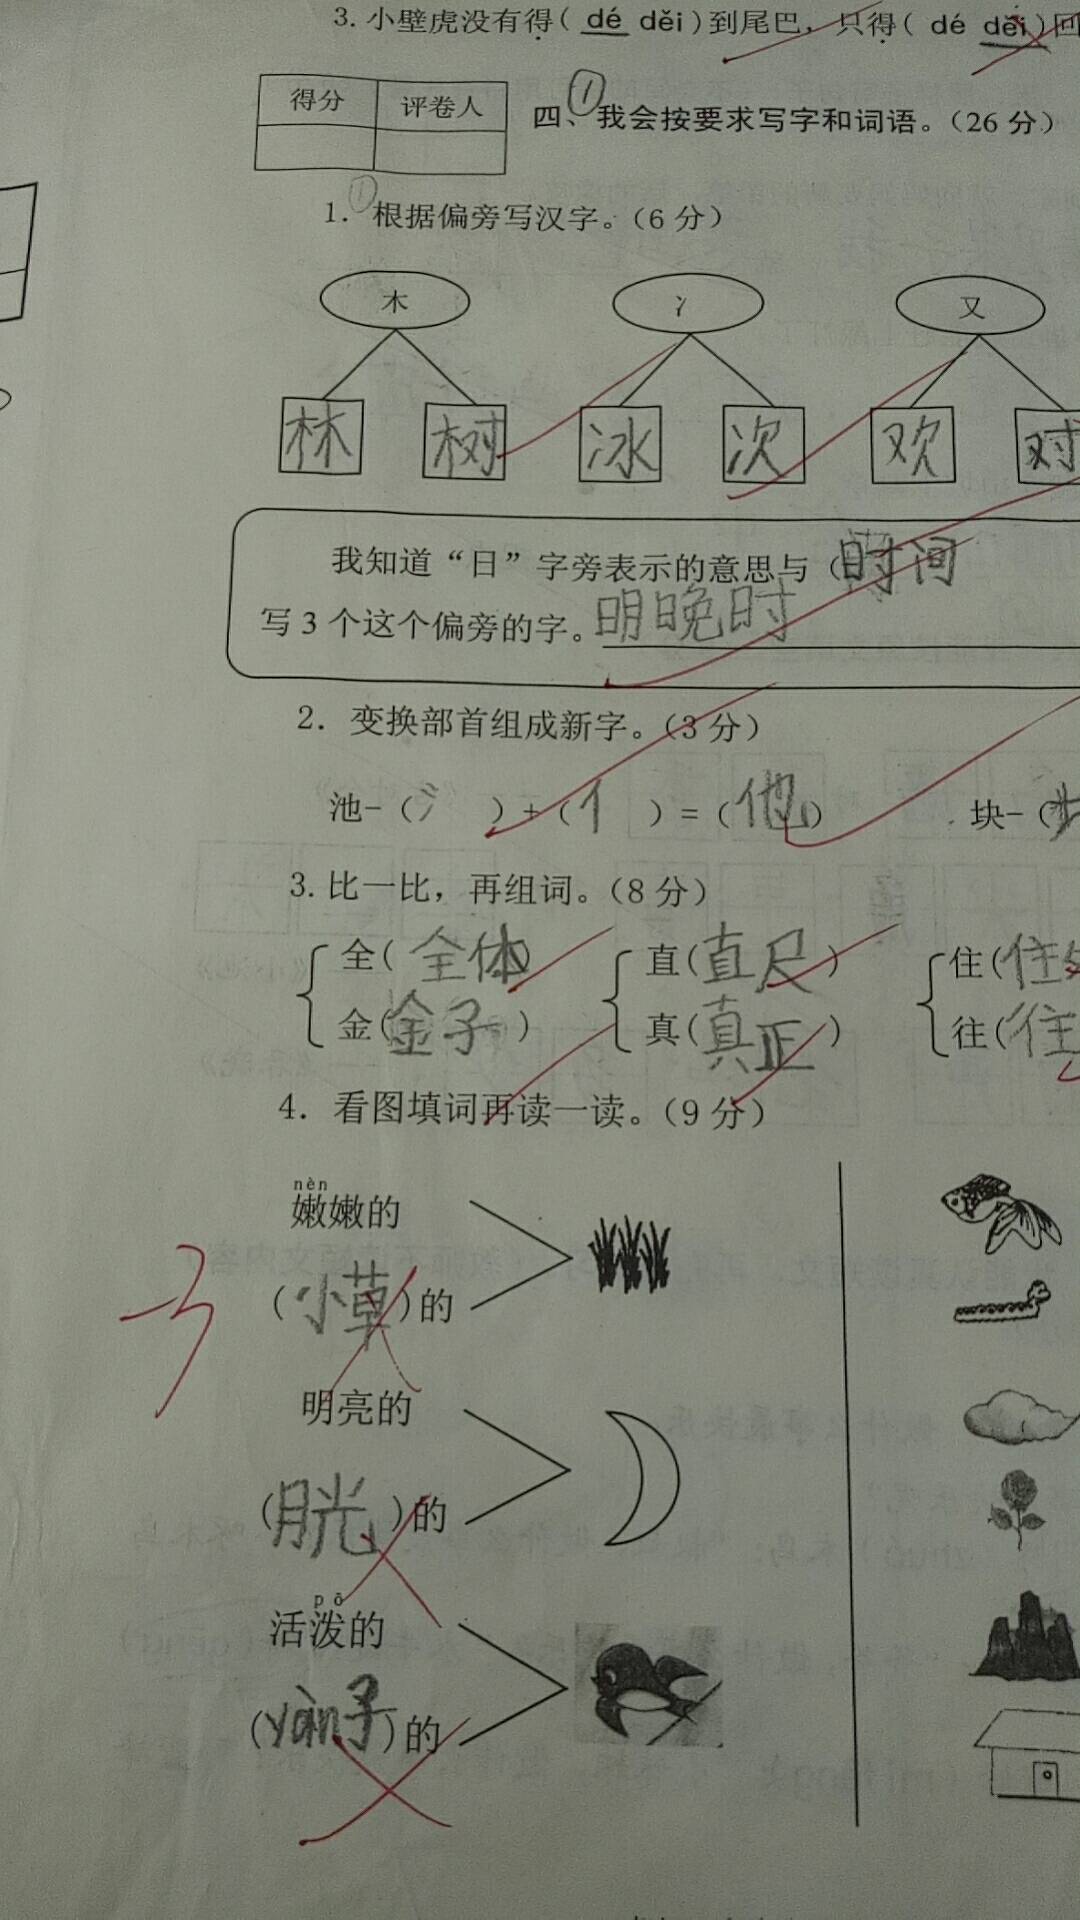 3. 小壁虎没有得( dé děi )到尾巴，只得( dé děi )回
得分 评卷人
四、我会按要求写字和词语。（26 分）
①
1. 根据偏旁写汉字。（6 分）
①
木 冫 又
林 树 冰 次 欢 对
我知道“日”字旁表示的意思与（时间
写 3 个这个偏旁的字。明晚时
2. 变换部首组成新字。（3 分）
池-（氵）+（亻）=（他） 块-（
3. 比一比，再组词。（8 分）
全( 全体 ) 直( 直尺 ) 住( 住
金( 金子 ) 真( 真正 ) 往( 住
4. 看图填词再读一读。（9 分）
nèn
嫩嫩的
( 小草 )的
明亮的
( 月光 )的
pō
活泼的
( yàn子 )的